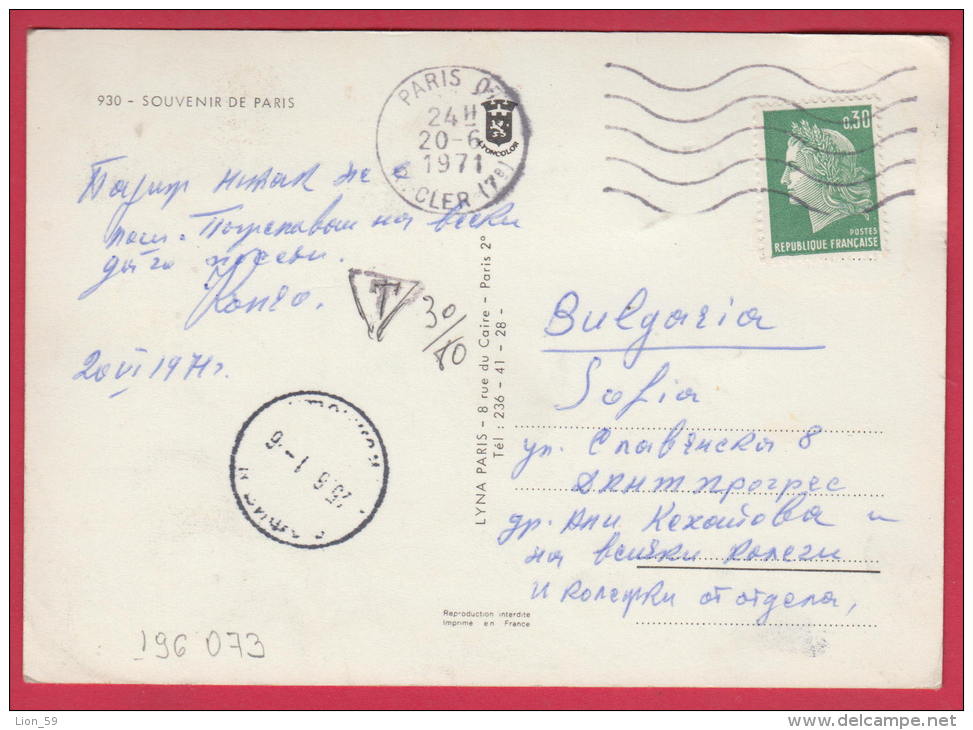 930 - SOUVENIR DE PARIS
PARIS
24H
20-6
1971
CLER (7e)
LYONCOLOR
0,30
POSTES
REPUBLIQUE FRANÇAISE
Париж никак не е
лош. Поздравявам на всеки
Коньо.
20 VI 1971 г.
T
30/80
25. 6. 1 - 16
LYNA PARIS - 8 rue du Caire - Paris 2°
Tél : 236 - 41 - 28 -
Bulgaria
Sofia
ул. Славянска 8
ДКНТ Прогрес
др. Ани Кехайова и
на всички колеги
и колежки от отдела,
Reproduction interdite
Imprimé en France
196 073
Lion_59
www.delcampe.net